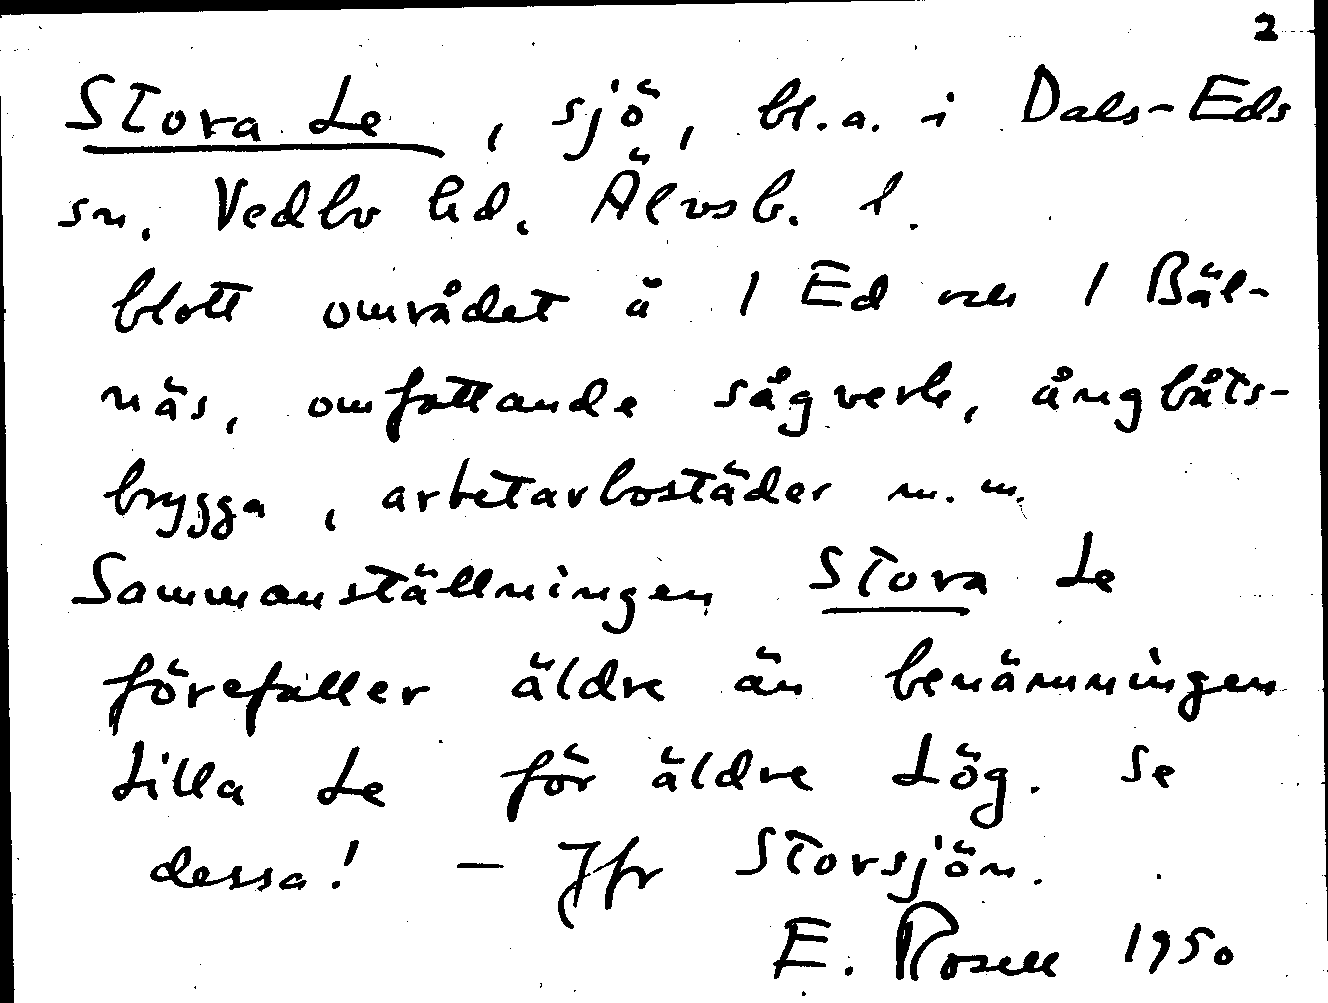 2
Stora Le, sjö, bl.a. i Dals-Eds
sn. Vedbo hd. Älvsb. l.
blott området ä 1 Ed och 1 Bäl-
näs, omfattande sågverk, ångbåts-
brygga, arbetarbostäder m.m.
Sammanställningen Stora Le
förefaller äldre än benämningen
Lilla Le för äldre Lög. Se
dessa! – Jfr Storsjön.
E. Rosell 1950